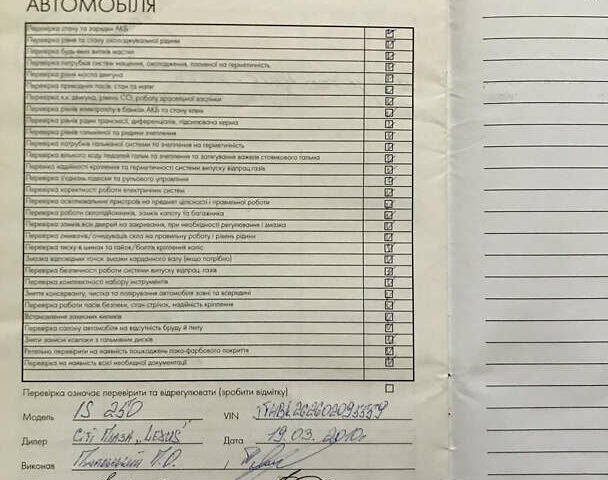 АВТОМОБІЛЯ
Перевірка стану та зарядки АКБ
Перевірка рівня та стану охолоджувальної рідини
Перевірка будь-яких витоків мастил
Перевірка патрубків систем мащення, охолодження, паливної на герметичність
Перевірка рівня масла двигуна
Перевірка приводних пасів, стан та натяг
Перевірка х.х. двигуна, рівень СО, роботу дросельної заслінки
Перевірка рівнів електроліту в банках АКБ та стану клем
Перевірка рівнів рідин трансмісії, диференціалів, підсилювача керма
Перевірка рівнів гальмівної та рідини зчеплення
Перевірка патрубків гальмівної системи та зчеплення на герметичність
Перевірка вільного ходу педалей гальм та зчеплення та затягування важеля стоянкового гальма
Перевірка надійності кріплення та герметичності системи випуску відпрац.газів
Перевірка з'єднань підвіски та рульового управління
Перевірка коректності роботи електричних систем
Перевірка освітлювальних пристроїв на предмет цілісності і правильної роботи
Перевірка роботи склопідйомників, замків капоту та багажника
Перевірка замків всіх дверей на закривання, при необхідності регулювання і змазка
Перевірка омивачів/очищувачів скла на правильну роботу і рівень рідини
Перевірка тиску в шинах та гайок/болтів кріплення коліс
Змазка відповідних точок змазки карданного валу (якщо потрібно)
Перевірка безпечності роботи системи випуску відпрац. газів
Перевірка комплектності набору інструментів
Зняття консерванту, чистка та полірування автомобіля зовні та всередині
Перевірка роботи пасів безпеки, стан стрічок, надійність кріплення
Встановлення захисних килимків
Перевірка салону автомобіля на відсутність бруду й пилу
Зняти захисні ковпаки з гальмівних дисків
Ретельно перевірити на наявність пошкоджень лако-фарбового покриття
Перевірка на наявність всієї необхідної документації
Перевірка означає перевірити та відрегулювати (зробити відмітку)
Модель IS 250 VIN
Дилер Сіті Плаза „Lexus" Дата 19.03.2010г
Виконав